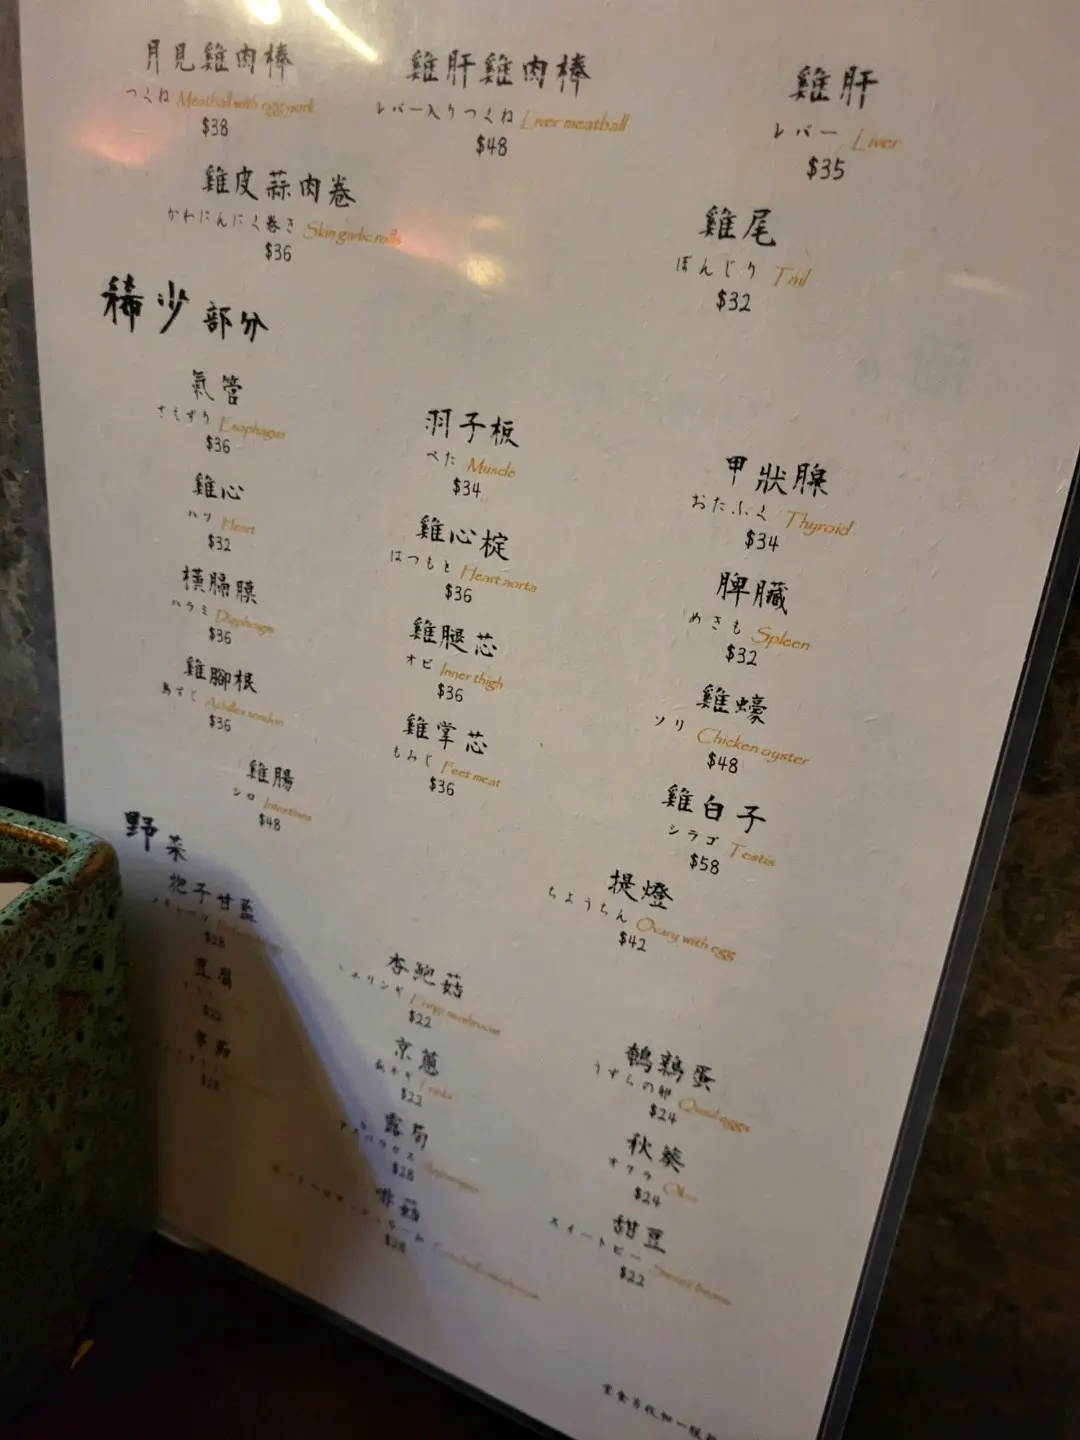 月見雞肉棒
つくね Meatball with egg york
$38
雞肝雞肉棒
レバー入りつくね Liver meatball
$48
雞肝
レバー Liver
$35
雞皮蒜肉卷
かわにんにく巻き Skin garlic rolls
$36
雞尾
ぼんじり Tail
$32
稀少部分
氣管
さえずり Esophagus
$36
羽子板
べた Muscle
$34
甲狀腺
おたふく Thyroid
$34
雞心
ハツ Heart
$32
雞心椗
はつもと Heart aorta
$36
脾臟
めぎも Spleen
$32
橫膈膜
ハラミ Diaphragm
$36
雞腿芯
オビ Inner thigh
$36
雞蠔
ソリ Chicken oyster
$48
雞腳根
鳥すじ Achilles tendon
$36
雞掌芯
もみじ Feet meat
$36
雞白子
シラゴ Testis
$58
雞腸
シロ Intestines
$48
提燈
ちょうちん Ovary with egg
$42
野菜
孢子甘藍
$28
豆腐
$22
$28
杏鮑菇
エリンギ mushroom
$22
京蔥
$22
露荀
アスパラガス Asparagus
$28
啡菇
$28
鵪鶉蛋
うずらの卵 Quail eggs
$24
秋葵
オクラ Okra
$24
甜豆
スイートピー
$22